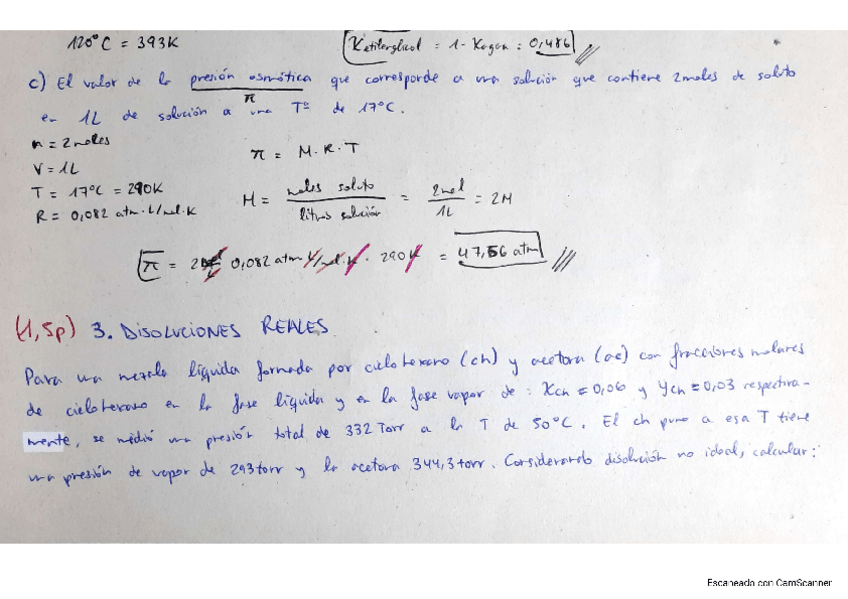 120°C = 393K
Xetilenglicol = 1 - Xagua = 0,486
c) El valor de la presión osmótica que corresponde a una solución que contiene 2 moles de soluto
π
en 1L de solución a una Tª de 17°C.
n = 2 moles
V = 1L
T = 17°C = 290K
R = 0,082 atm·L/mol·K
π = M·R·T
M = moles soluto / litros solución = 2mol / 1L = 2M
π = 2 0,082 atm L/mol·K · 290K = 47,56 atm
(1,5p) 3. DISOLUCIONES REALES
Para una mezcla líquida formada por ciclohexano (ch) y acetona (ac) con fracciones molares
de ciclohexano en la fase líquida y en la fase vapor de: Xch = 0,06 y Ych = 0,03 respectiva-
mente, se midió una presión total de 332 Torr a la T de 50°C. El ch puro a esa T tiene
una presión de vapor de 293 torr y la acetona 344,3 torr. Considerando disolución no ideal, calcular:
Escaneado con CamScanner